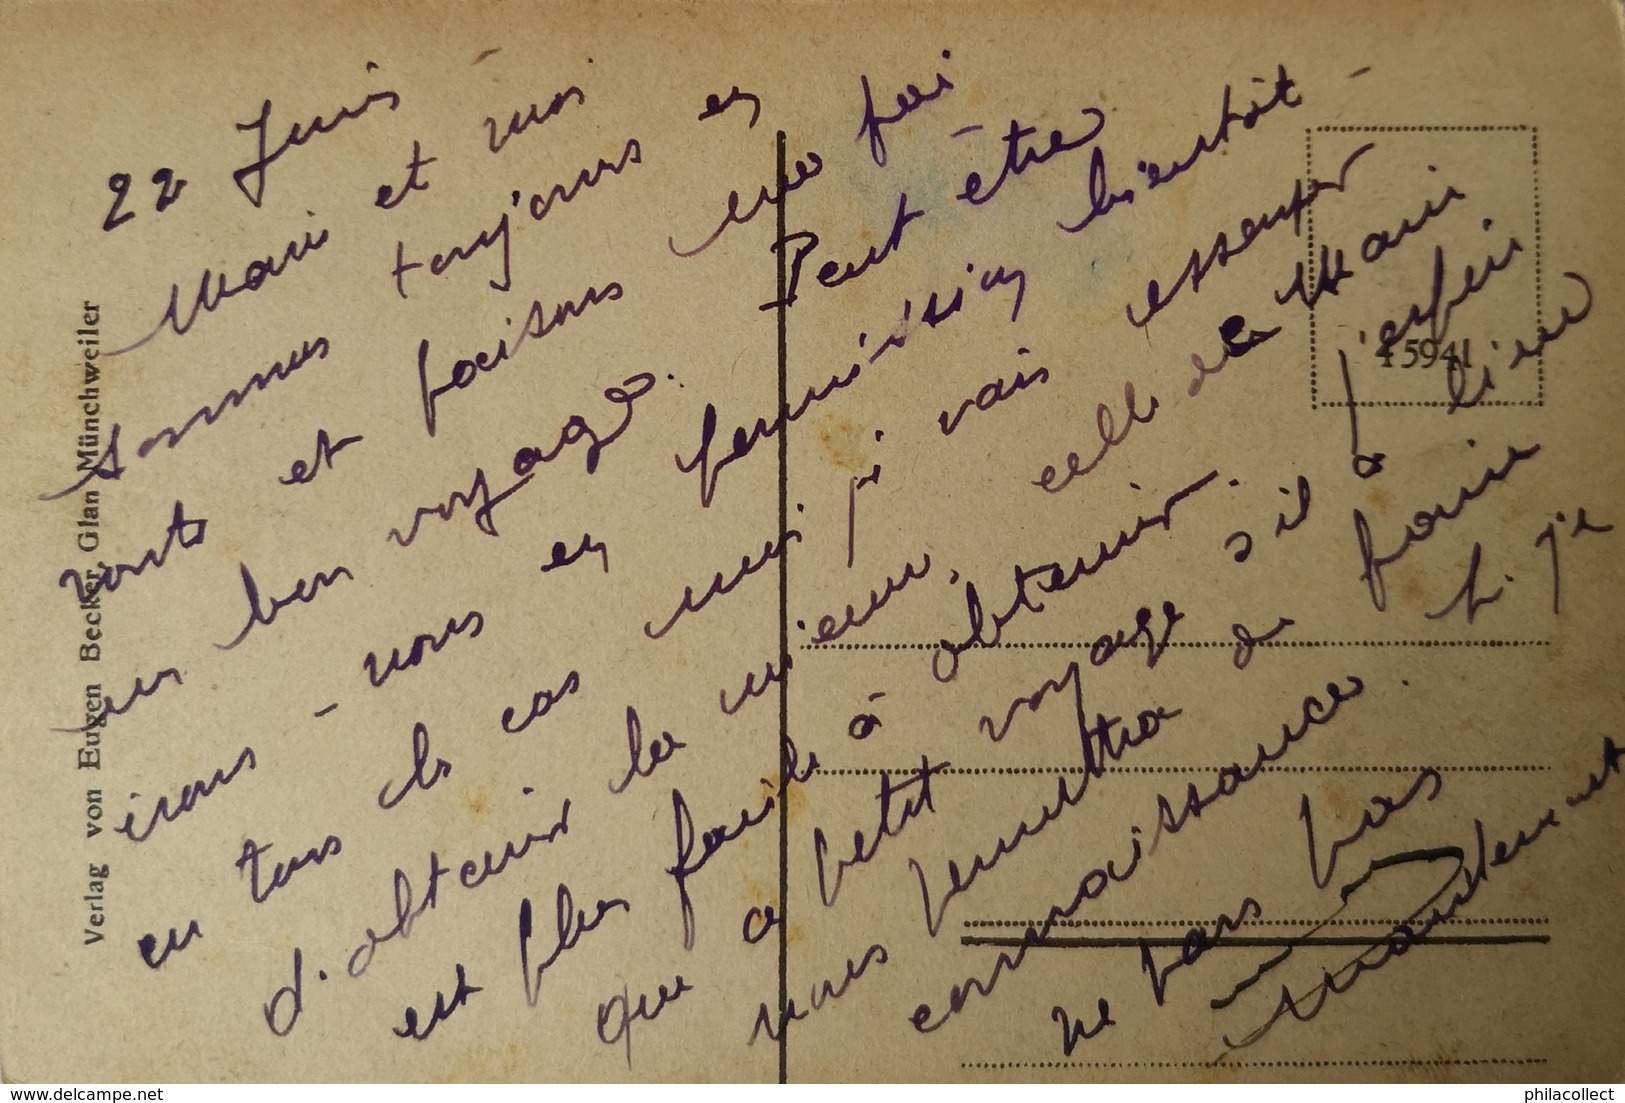 22 Juin
Marie et moi
sommes toujours en
route et faisons une foi
un bon voyage. Peut être
irons-nous en permission bientôt -
en tous les cas moi je vais essayer
d'obtenir la mienne, celle de Marie
est plus facile à obtenir. j'espère
que ce petit voyage s'il a lieu
nous permettra de faire
connaissance. Si je
ne pars pas
maintenant
Verlag von Eugen Becker, Glan Münchweiler
45941
philacollect
delcampe.net